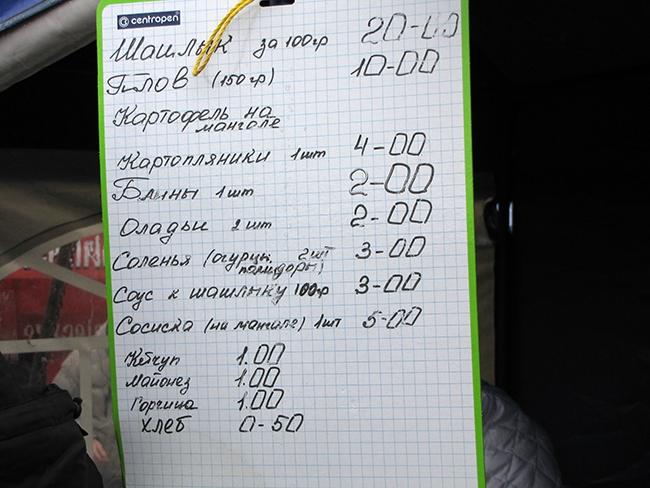 centropen
Шашлык за 100гр 20-00
Плов (150гр) 10-00
Картофель на
мангале
Картопляники 1шт 4-00
Блины 1шт 2-00
Оладьи 2шт 2-00
Соленья (огурцы, 2шт 3-00
помидоры)
Соус к шашлыку 100гр 3-00
Сосиска (на мангале) 1шт 5-00
Кетчуп 1.00
Майонез 1.00
Горчица 1.00
Хлеб 0-50